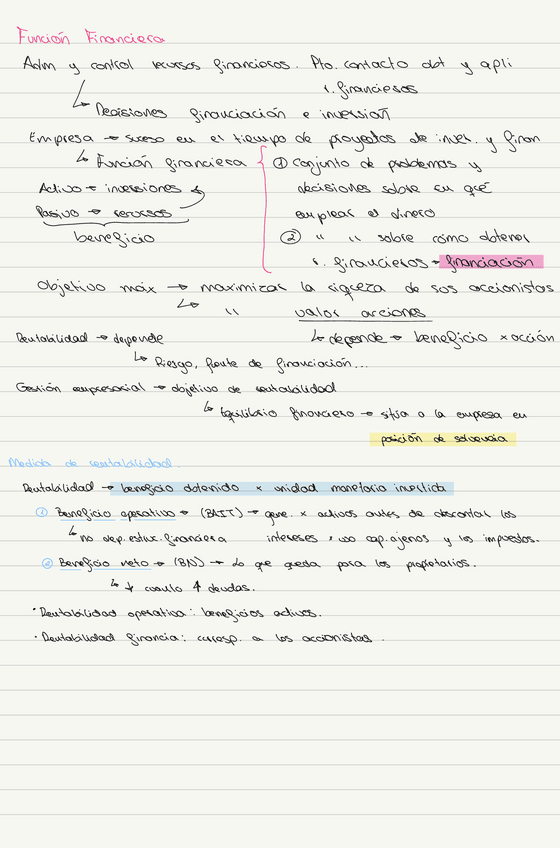 Función Financiera
Adm y control recursos financieros. Pto. contacto obt y apli
r. financieros
↳ Decisiones financiación e inversión
Empresa → suceso en el tiempo de proyectos de inver. y finan
↳ Función financiera { ① Conjunto de problemas y
Activo → inversiones decisiones sobre en qué
Pasivo → recursos emplear el dinero
beneficio ② " " sobre cómo obtener
r. financieros → financiación
Objetivo máx → maximizar la riqueza de sus accionistas
↳ " valor acciones
Rentabilidad → depende ↳ depende → beneficio x acción
↳ Riesgo, fuente de financiación...
Gestión empresarial → objetivo de rentabilidad
↳ Equilibrio financiero → sitúa a la empresa en
posición de solvencia
Medida de rentabilidad.
Rentabilidad → beneficio obtenido x unidad monetaria invertida
① Beneficio operativo → (BAIT) → gene. x activos antes de descontar los
↳ no dep. estruc. financiera intereses x uso cap. ajenos y los impuestos.
② Beneficio neto → (BN) → Lo que queda para los propietarios.
↳ ↓ cuando ↑ deudas.
· Rentabilidad operativa: beneficios activos.
· Rentabilidad financia: corresp. a los accionistas.